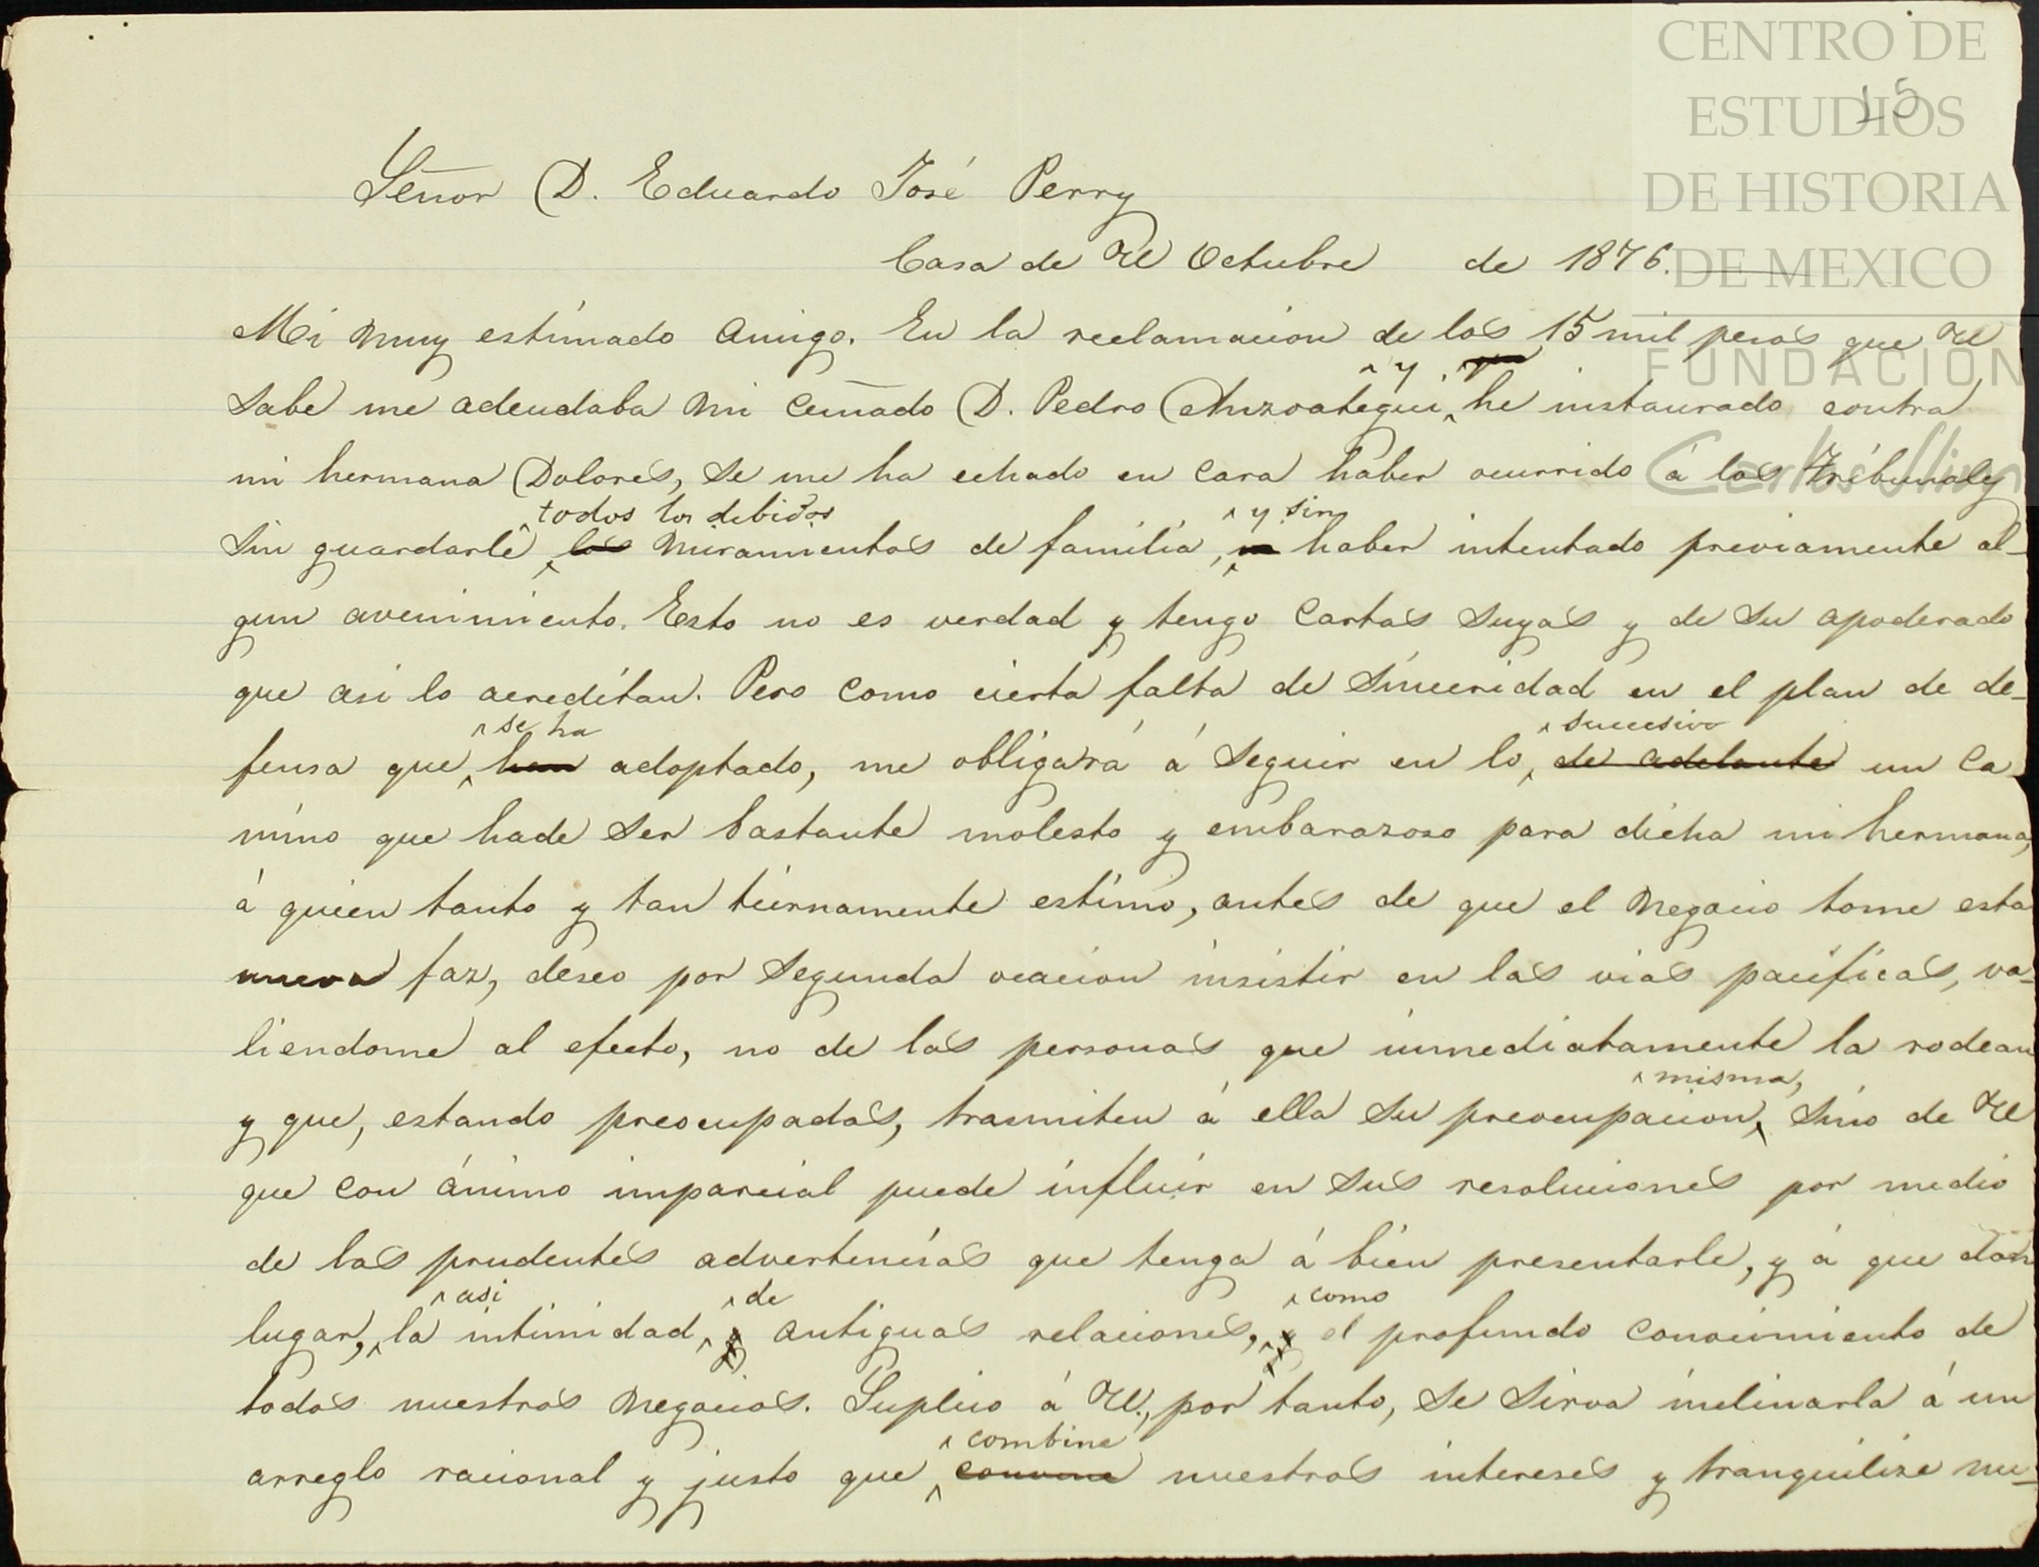 CENTRO DE
ESTUDIOS
DE HISTORIA
DE MEXICO
FUNDACIÓN
Carlos Slim
15
Señor D. Eduardo José Perry
Casa de U Octubre de 1876.
Mi muy estimado amigo. En la reclamacion de los 15 mil pesos que U
^ y, que
sabe me adeudaba mi cuñado D. Pedro Anzoategui, he instaurado contra
mi hermana Dolores, se me ha echado en cara haber ocurrido á los Tribunales
^ todos los debidos ^ y sin
sin guardarle los miramientos de familia, haber intentado previamente al-
gun avenimiento. Esto no es verdad y tengo cartas suyas y de su apoderado
que asi lo acreditan. Pero como cierta falta de sinceridad en el plan de de-
^ se ha ^ sucesivo
fensa que han adoptado, me obligará á seguir en lo, de adelante un ca-
mino que hade ser bastante molesto y embarazoso para dicha mi hermana,
á quien tanto y tan tiernamente estimo, antes de que el negocio tome esta
nueva faz, deseo por segunda ocacion insistir en las vias pacificas, va-
liendome al efecto, no de las personas que inmediatamente la rodean
^ misma,
y que, estando preocupadas, trasmiten á ella su preocupacion, sino de U
que con ánimo imparcial puede influir en sus resoluciones por medio
de las prudentes advertencias que tenga á bien presentarle, y á que dan
^ asi ^ de ^ como
lugar, la intimidad, y antiguas relaciones, y el profundo conocimiento de
todos nuestros negocios. Suplico á U., por tanto, se sirva inclinarla á un
^ combine
arreglo racional y justo que convine nuestros intereses y tranquilize nu-